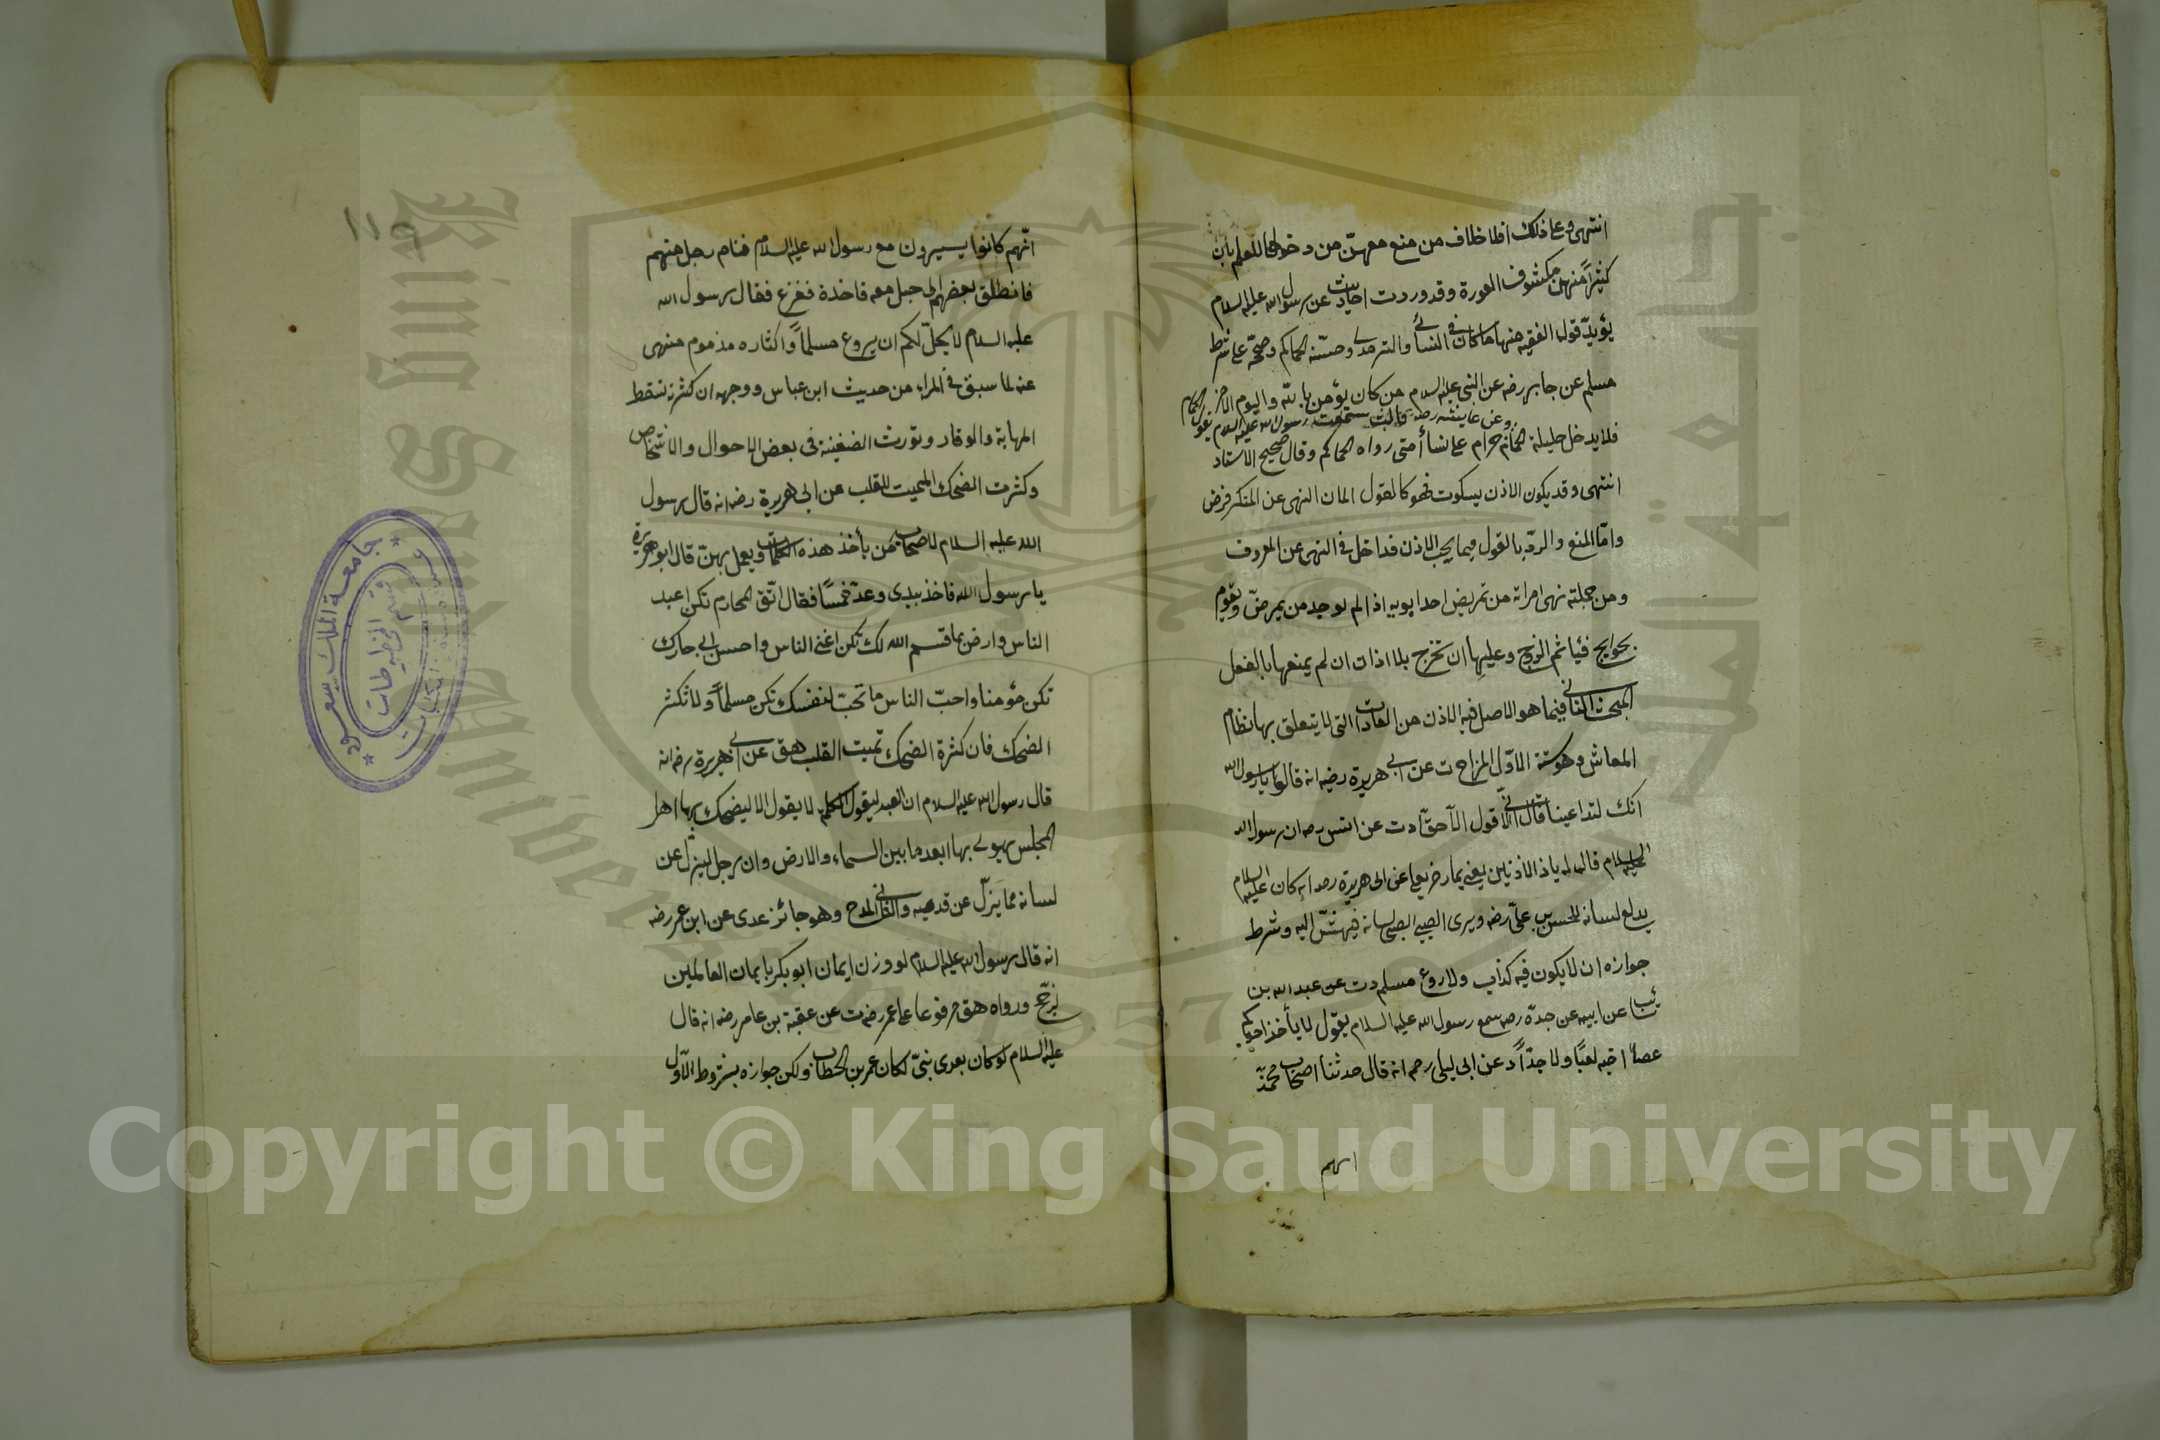 انتهى وعا ذلك فلا خلاف من منع معهن من دخوله للعلم بان
كثيرا منهن مكشوف العورة وقد وردت احاديث عن رسول الله عليه السلام
يؤيد قول الفقيه منها ما كان في النسائي والترمذي وحسنه الحاكم وصححه على شرط
مسلم عن جابر رضه عن النبي عليه السلام من كان يؤمن بالله واليوم الآخر
وعن عايشه رضه قالت سمعت رسول الله عليه السلام يقول الحمام
فلا يدخل حليلة الحمام حرام على نسأ أمتى رواه الحاكم وقال صحيح الاسناد
انتهى وقد يكون الاذن بسكوت فهو كالقول لان النهى عن المنكر فرض
واما المنع والرد بالقول فيما يجب الاذن فداخل في النهى عن المعروف
ومن جملته نهى امراته من تمريض احد ابويه اذا لم يوجد من يمرض ويقوم
بحوايج فيأثم الزوج وعليها ان تخرج بلا اذن ان لم يمنعها بالفعل
المبحث الثاني فيما هو الاصل فيه الاذن من العادات التى لا يتعلق بها نظام
المعاش وهو ستة الاول المزاح ت عن ابي هريرة رضه انه قالوا يا رسول الله
انك لتداعبنا قال انى لا اقول الا حقا دت عن انس رضه ان رسول الله
عليه السلام قال له يا ذا الاذنين يعنى يمازحه يعلى عن ابى هريرة رضه انه كان عليه السلام
يدلع لسانه للحسن بن على رضه ويرى الصبي لسانه فيهش اليه وشرط
جوازه ان لا يكون فيه كذب ولا روع مسلم دت عن عبد الله بن
سائب عن ابيه عن جده رضه سمع رسول الله عليه السلام يقول لا يأخذ احدكم
عصا اخيه لعبا ولا جدا د عن ابى ليلى رحه انه قال حدثنا اصحاب محمد
انهم
١١٩
انهم كانوا يسيرون مع رسول الله عليه السلام فنام رجل منهم
فانطلق بعضهم الى حبل معه فاخذه ففزع فقال رسول الله
عليه السلام لا يحل لكم ان يروع مسلما واكثاره مذموم منهى
عنه لما سبق في المراء من حديث ابن عباس ووجهه ان كثرته تسقط
المهابة والوقار وتورث الضغينة فى بعض الاحوال والاشخاص
وكثرت الضحك المميت للقلب عن ابى هريرة رضه انه قال رسول
الله عليه السلام لاصحابه من يأخذ هذه الكلمات ويعمل بهن قال ابو هريرة
يا رسول الله فاخذ بيدى وعد خمسا فقال اتق المحارم تكن اعبد
الناس وارض بما قسم الله لك تكن اغنى الناس واحسن الى جارك
تكن مؤمنا واحب الناس ما تحب لنفسك تكن مسلما ولا تكثر
الضحك فان كثرة الضحك تميت القلب هق عن ابي هريرة رضه انه
قال رسول الله عليه السلام ان العبد ليقول الكلمه لا يقول الا ليضحك بها اهل
المجلس يهوى بها ابعد ما بين السماء والارض وان رجل ليزل عن
لسانه مما يزل عن قدميه والثانى المدح وهو جائز عدى عن ابن عمر رضه
انه قال رسول الله عليه السلام لو وزن ايمان ابو بكر بايمان العالمين
لرجح ورواه هق مرفوعا على عمر رضه ت عن عقبة بن عامر رضه انه قال
عليه السلام لو كان بعدى نبى لكان عمر بن الخطاب ولكن جوازه بشروط الاول
جامعة الملك سعود
قسم المخطوطات
King Saud University
جامعة الملك سعود
1957
Copyright © King Saud University